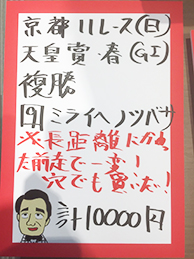 京都11レース(日)
天皇賞・春(GⅠ)
複勝
[9]ミライヘノツバサ
※長距離にかわ
た前走で一変!
穴でも買いた!
計10000円